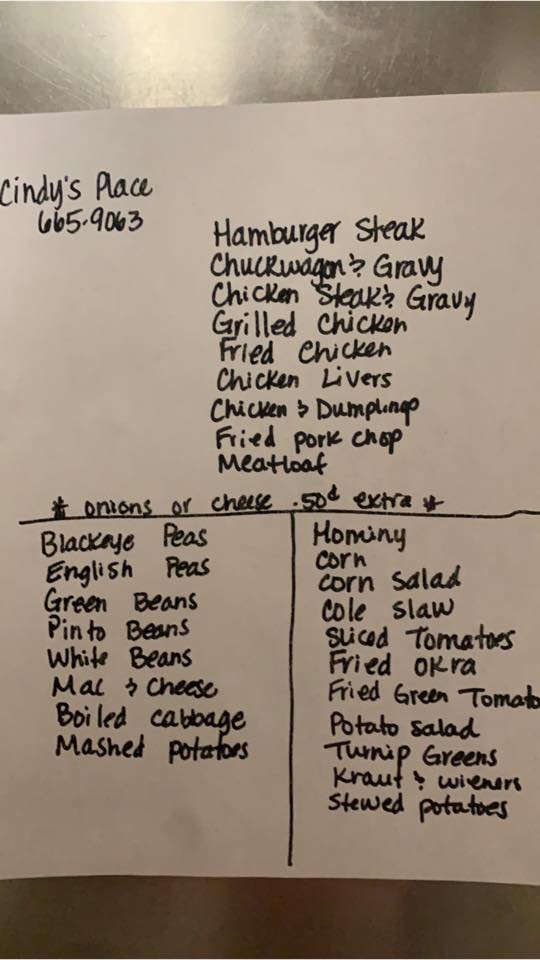 Cindy's Place
665-9063
Hamburger Steak
Chuckwagon & Gravy
Chicken Steak & Gravy
Grilled Chicken
Fried Chicken
Chicken Livers
Chicken & Dumplings
Fried pork chop
Meatloaf
* onions or cheese .50¢ extra *
Blackeye Peas
English Peas
Green Beans
Pinto Beans
White Beans
Mac & Cheese
Boiled cabbage
Mashed potatoes
Hominy
corn
corn salad
cole slaw
sliced Tomatoes
Fried okra
Fried Green Tomato
Potato salad
Turnip Greens
Kraut & wieners
Stewed potatoes